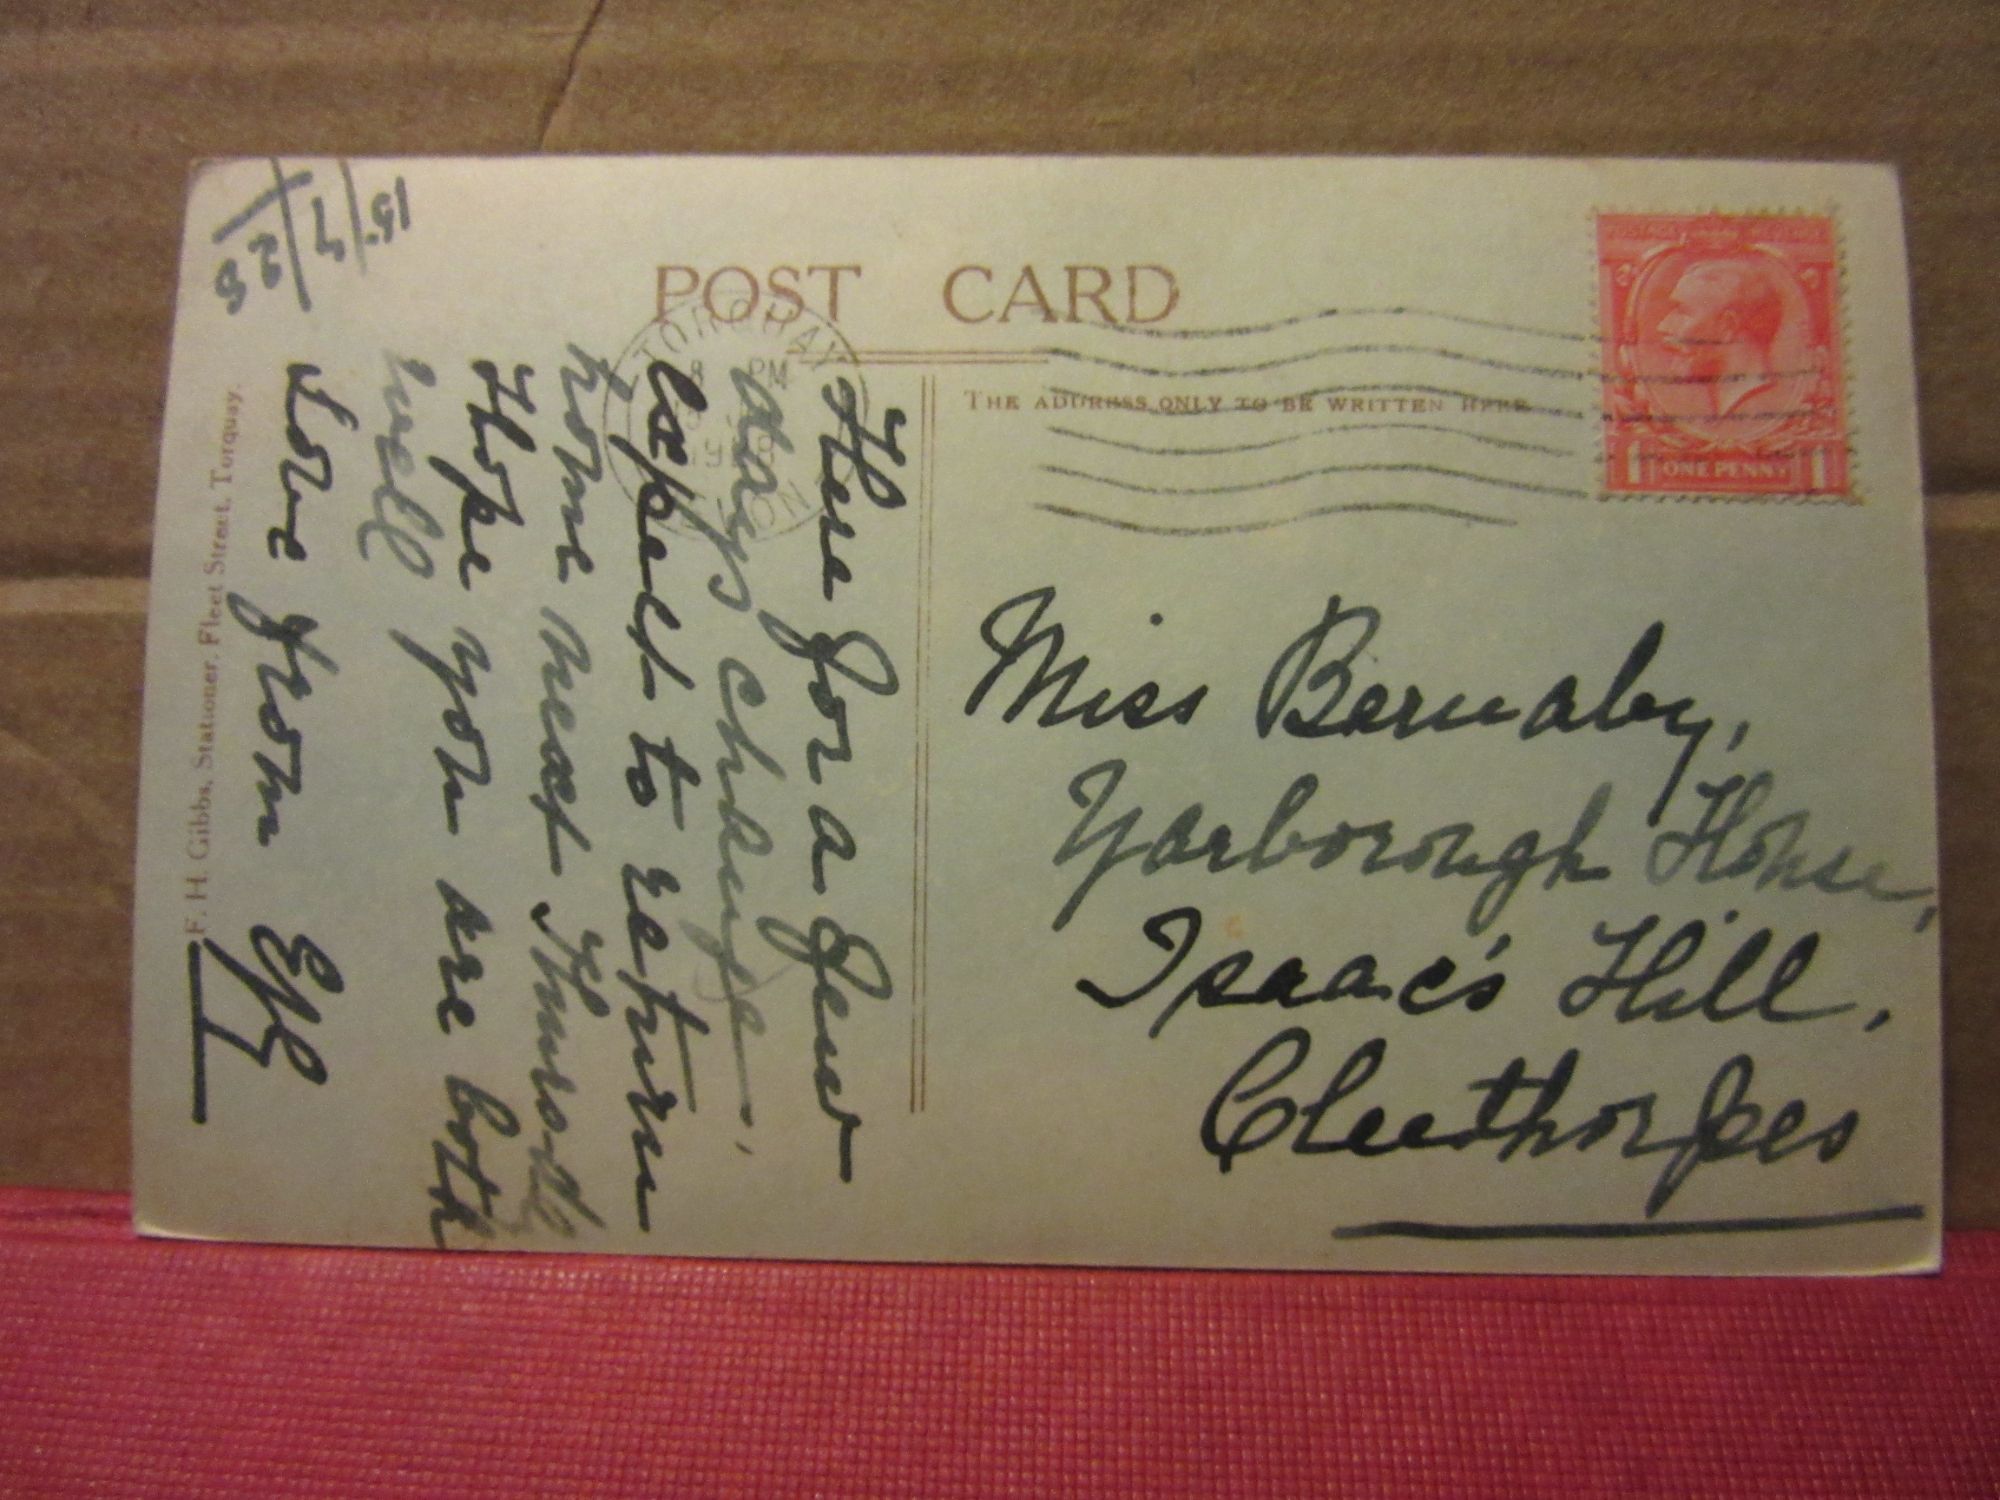 POST CARD
THE ADDRESS ONLY TO BE WRITTEN HERE
TORQUAY
8 PM
DEVON
ONE PENNY
15/7/28
Here for a few
days change,
expect to return
home next Thursday
Hope you are both
well
Love from
Miss Bernaby,
Yarborough House,
Isaac's Hill,
Cleethorpes
F. H. Gibbs, Stationer, Fleet Street, Torquay.